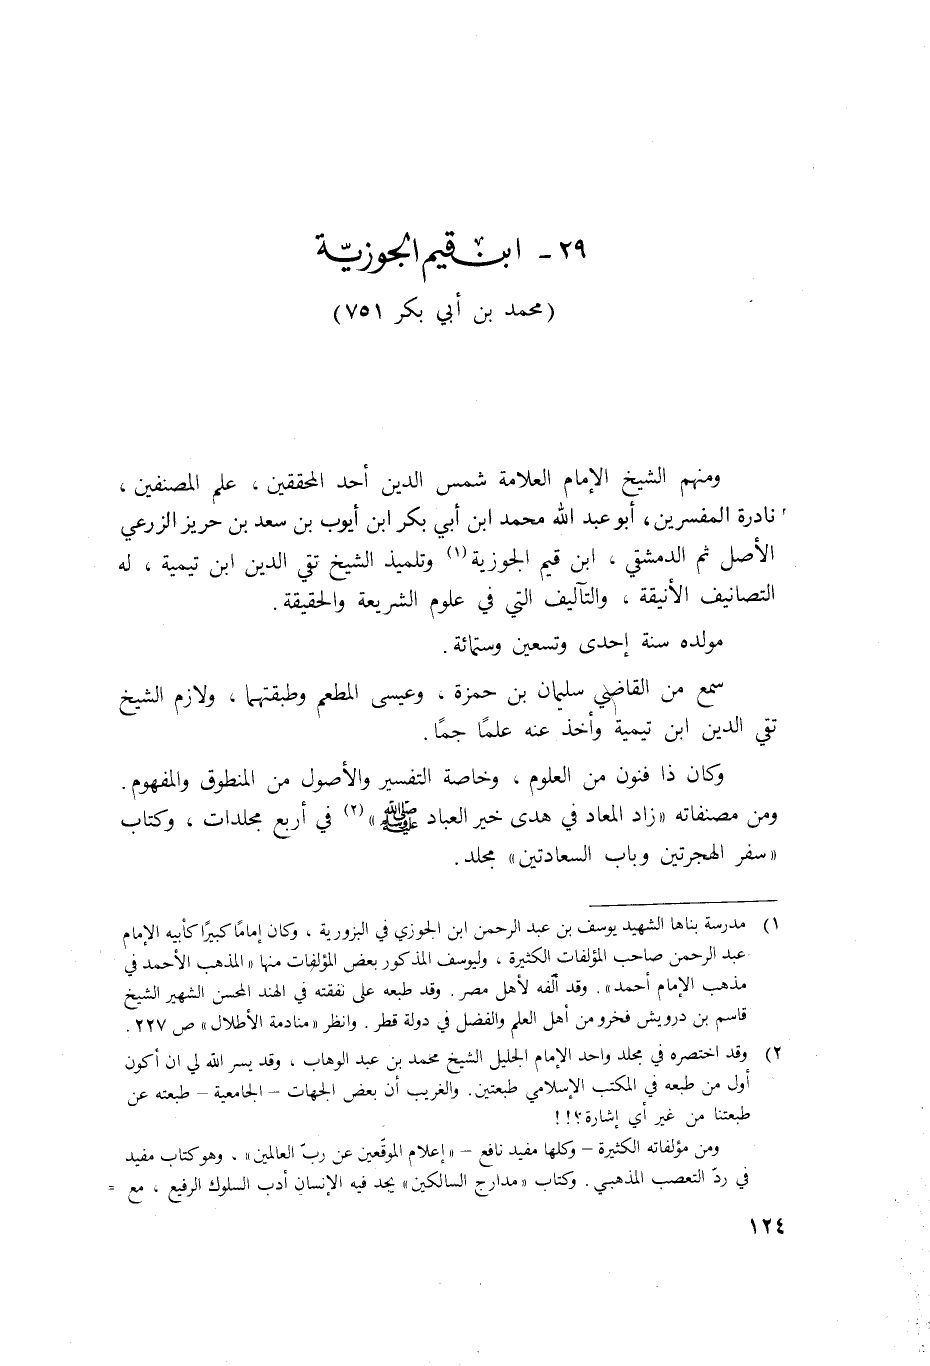 ٢٩ - ابن قيم الجوزيّة
(محمد بن أبي بكر ٧٥١)
ومنهم الشيخ الإمام العلامة شمس الدين أحد المحققين ، علم المصنفين ،
نادرة المفسرين ، أبو عبد الله محمد ابن أبي بكر ابن أيوب بن سعد بن حريز الزرعي
الأصل ثم الدمشقي ، ابن قيم الجوزية(١) وتلميذ الشيخ تقي الدين ابن تيمية ، له
التصانيف الأنيقة ، والتآليف التي في علوم الشريعة والحقيقة .
مولده سنة إحدى وتسعين وستمائة .
سمع من القاضي سليمان بن حمزة ، وعيسى المطعم وطبقتهما ، ولازم الشيخ
تقي الدين ابن تيمية وأخذ عنه علمًا جمًا .
وكان ذا فنون من العلوم ، وخاصة التفسير والأصول من المنطوق والمفهوم .
ومن مصنفاته «زاد المعاد في هدى خير العباد ﷺ»(٢) في أربع مجلدات ، وكتاب
«سفر الهجرتين وباب السعادتين» مجلد .
١) مدرسة بناها الشهيد يوسف بن عبد الرحمن ابن الجوزي في البزورية ، وكان إمامًا كبيرًا كأبيه الإمام
عبد الرحمن صاحب المؤلفات الكثيرة ، وليوسف المذكور بعض المؤلفات منها «المذهب الأحمد في
مذهب الإمام أحمد» . وقد ألّفه لأهل مصر . وقد طبعه على نفقته في الهند المحسن الشهير الشيخ
قاسم بن درويش فخرو من أهل العلم والفضل في دولة قطر . وانظر «منادمة الأطلال» ص ٢٢٧ .
٢) وقد اختصره في مجلد واحد الإمام الجليل الشيخ محمد بن عبد الوهاب ، وقد يسر الله لي ان أكون
أول من طبعه في المكتب الإسلامي طبعتين . والغريب أن بعض الجهات – الجامعية – طبعته عن
طبعتنا من غير أي إشارة؟!!
ومن مؤلفاته الكثيرة – وكلها مفيد نافع – «إعلام الموقّعين عن ربّ العالمين» . وهو كتاب مفيد
في ردّ التعصب المذهبي . وكتاب «مدارج السالكين» يجد فيه الإنسان أدب السلوك الرفيع ، مع =
١٢٤